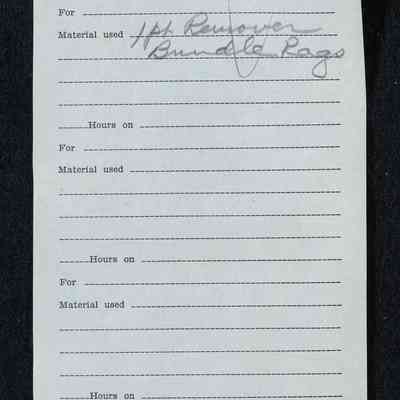 For
Material used 1 pt. Remover
Bundle Rags
Hours on
For
Material used
Hours on
For
Material used
Hours on